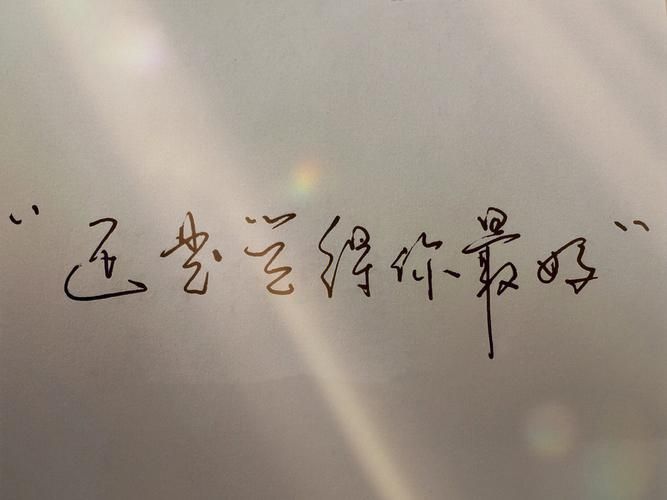 “还是觉得你最好”